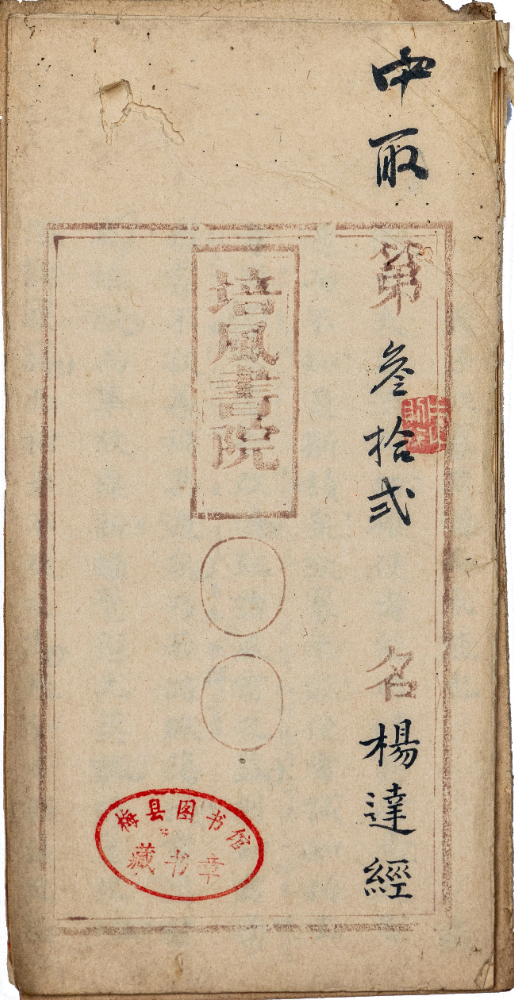 中取
第叄拾弍名楊達經
培風書院
梅县图书馆
藏书章